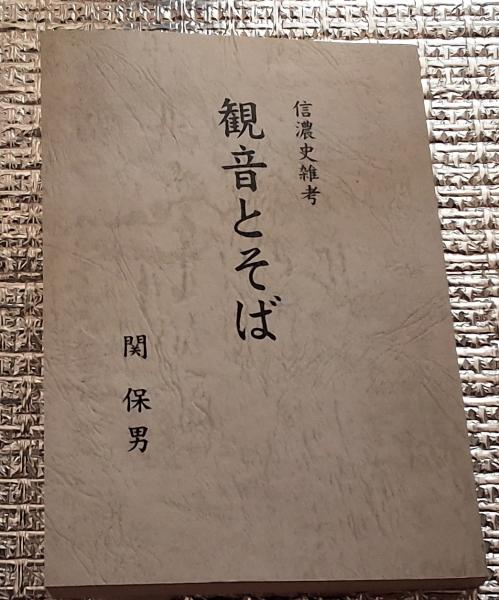 信濃史雑考
観音とそば
関保男